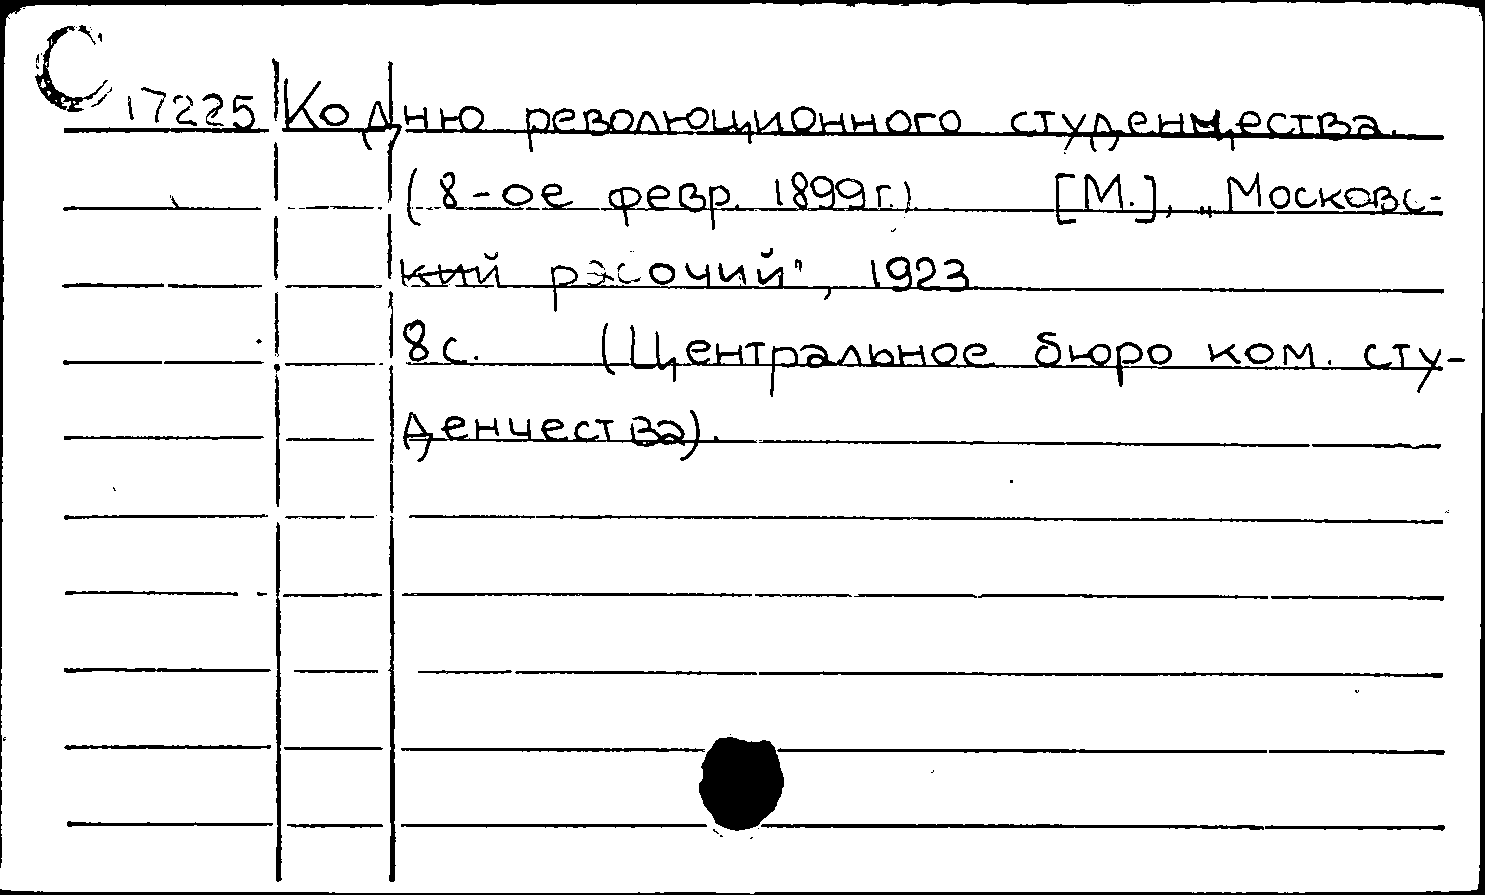 С
17225 Ко дню революционного студенчества.
(8-ое февр. 1899г.) [М.], „Московс-
кий рабочий", 1923
8с. (Центральное бюро ком. сту-
денчества).